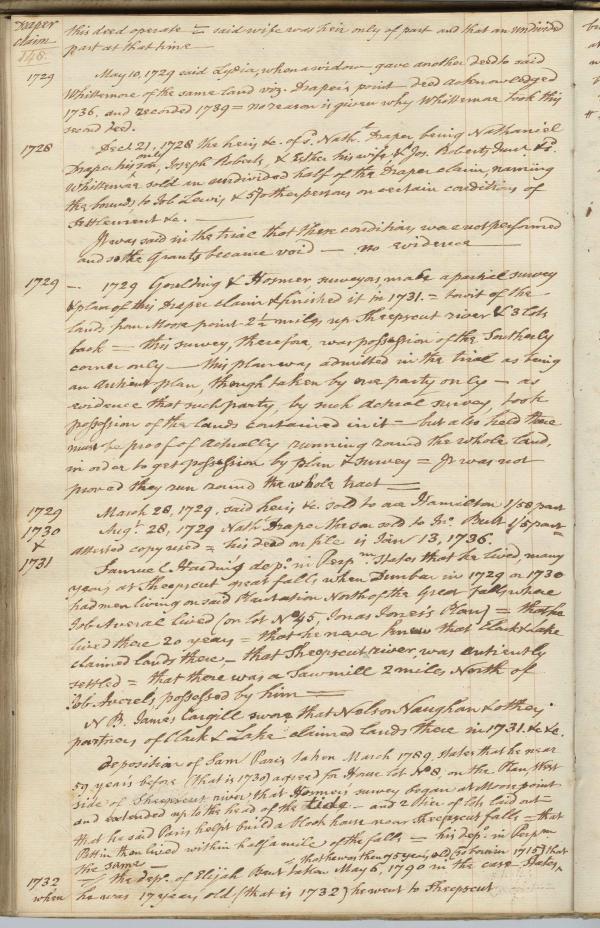 Draper claim 148.
this deed operate = said wife was heir only of part and that an undivided
part at that time
1729 May 10, 1729 said Lydia, when a widow gave another deed to said
Whittemore of the same land viz. Draper's point - deed acknowledged
1736, and recorded 1739 = no reason is given why Whittemore took this
second deed.
1728 Decr. 21, 1728 the heirs &c. of sd. Nathl. Draper being Nathaniel
Draper his only son, Joseph Roberts, & Esther his wife, & Jos. Roberts Junr. & sd.
Whittemore sold an undivided half of the Draper claim, naming
the bounds to Job Lewis & 57 other persons on certain conditions of
settlement &c. —
It was said in the trial that these conditions was not performed
and so the grants became void — no evidence —
1729 — 1729 Goulding & Hosmer surveyors made a partial survey
& plan of this Draper claim & finished it in 1731. = towit of the
lands from Moor point 2½ miles up Sheepscut river & 3 lots
back — this survey, therefore, was possession of the Southerly
corner only — this plan was admitted in the trial as being
an antient plan, though taken by one party only — as
evidence that such party, by such actual survey, took
possession of the lands contained in it — but also held there
must be proof of actually running round the whole land,
in order to get possession by plan & survey = It was not
proved they run round the whole tract —
1729 March 28, 1729, said heirs &c. sold to Hamilton 1/58 part
1730 Augt. 28, 1729 Nathl. Draper the son sold to Jno. Bent 1/5 part =
& attested copy used = his deed on file is Jan 13, 1736.
1731 Samuel Harding depo. in Perpm. states that he lived, many
years at Sheepscut great falls when Dunbar in 1729 or 1730
had men living on said Plantation North of the Great falls where
Job Averal lived (on lot No 45, Jonas Jones's Plan) = that he
lived there 20 years = that he never knew that Clark & Lake
claimed lands there — that Sheepscut river, was antiently
settled = that there was a Sawmill 2 miles North of
Job Averel's, possessed by him —
N B. James Cargill swore that Nelson Vaughan & other
partners of Clark & Lake claimed lands there in 1731. &c &c.
Deposition of Sam Paris taken March 1789, states that he near
59 years before (that is 1730) agreed for House lot No 8, on the Plan, West
side of Sheepscut river, that Hosmer's survey began at Moor point
and extended up to the head of the tide — and 2 tier of lots laid out —
that he said Paris helpt build a Block house near Sheepscut falls = that
then lived within half a mile of the falls — his depo. in Perpm
the same — that he was then 75 years old (so born in 1715) that
1732 — the depo. of Elijah Bent taken May 6, 1790 in the case states,
when he was 17 years old (that is 1732) he went to Sheepscut